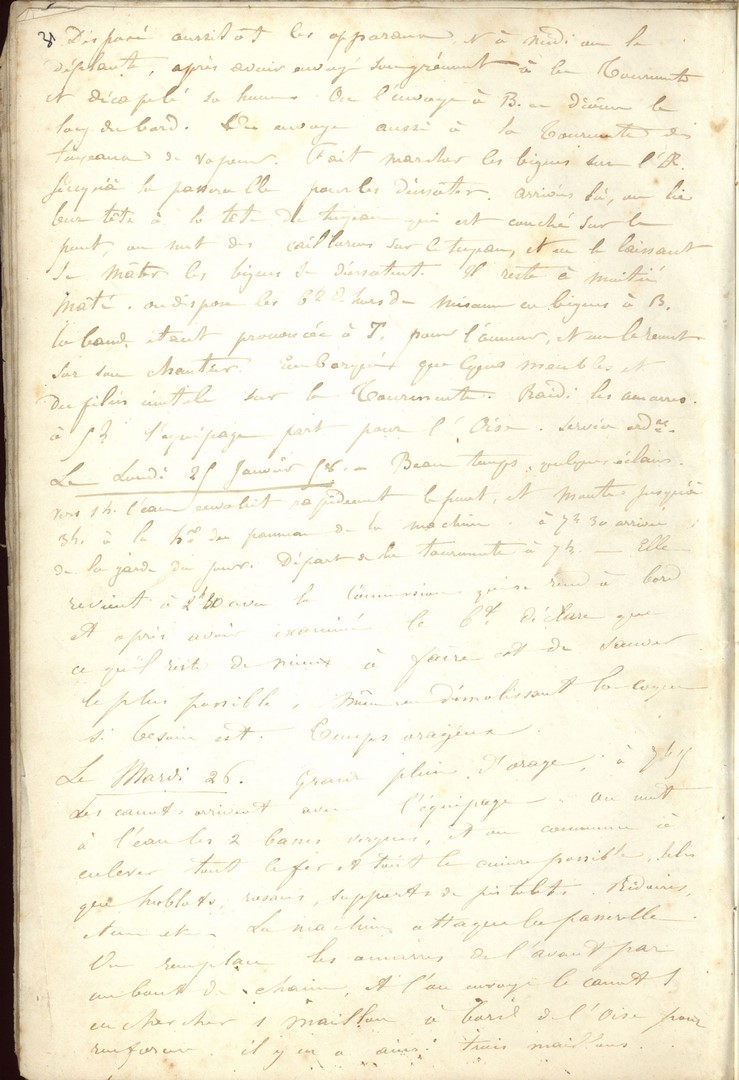 Disposé aussitôt les apparaux, et à midi on la
déplante, après avoir envoyé son grément à la Tourmente
et décapelé sa hune. On l'envoye à B. en drôme le
long du bord. On envoye aussi à la Tourmente des
tuyeaux de vapeur. Fait marcher les bigues sur l'AR.
jusqu'à la passerelle pour les démâter. arrivées là, on lie
leur tête à la tête du tuyau qui est couché sur le
pont, on met des caillebotis sur le tuyau, et en le laissant
se mâter les bigues se démâtent. Il reste à moitié
mâté. on dispose les de misaine en bigues à B.
la bande étant prononcée à T. pour l'amener, et on le remet
sur son chantier. Embarqué quelques meubles et
du filin inutile sur la Tourmente. Raidi les amarres.
à 5h l'équipage part pour l'Oise. service ord.re
Le Lundi 25 Janvier 58. - Beau temps, quelques éclairs.
vers 1h. l'eau envahit rapidement le pont, et monte jusqu'à
3h. à la h.r du panneau de la machine. à 7h 30 arrivée
de la garde du jour. Départ de la tourmente à 7h. - Elle
revient à avec la Commission qui se rend à bord
et après avoir examiné le b.t déclare que
ce qu'il reste de mieux à faire est de sauver
le plus possible, même en démolissant la coque
si besoin est. Temps orageux.
Le Mardi 26. Grande pluie d'orage, à 7h
Les canots arrivent avec l'équipage. on met
à l'eau les 2 basses vergues, et on commence à
enlever tout le fer et tout le cuivre possible, tels
que hublots, supports de pistolets. Ridoires,
La machine attaque la passerelle.
On remplace les amarres de l'avant par
un bout de chaine, et l'on envoye le canot 1
en chercher 1 maillon à bord de l'Oise pour
renforcer il y en a ainsi trois maillons.